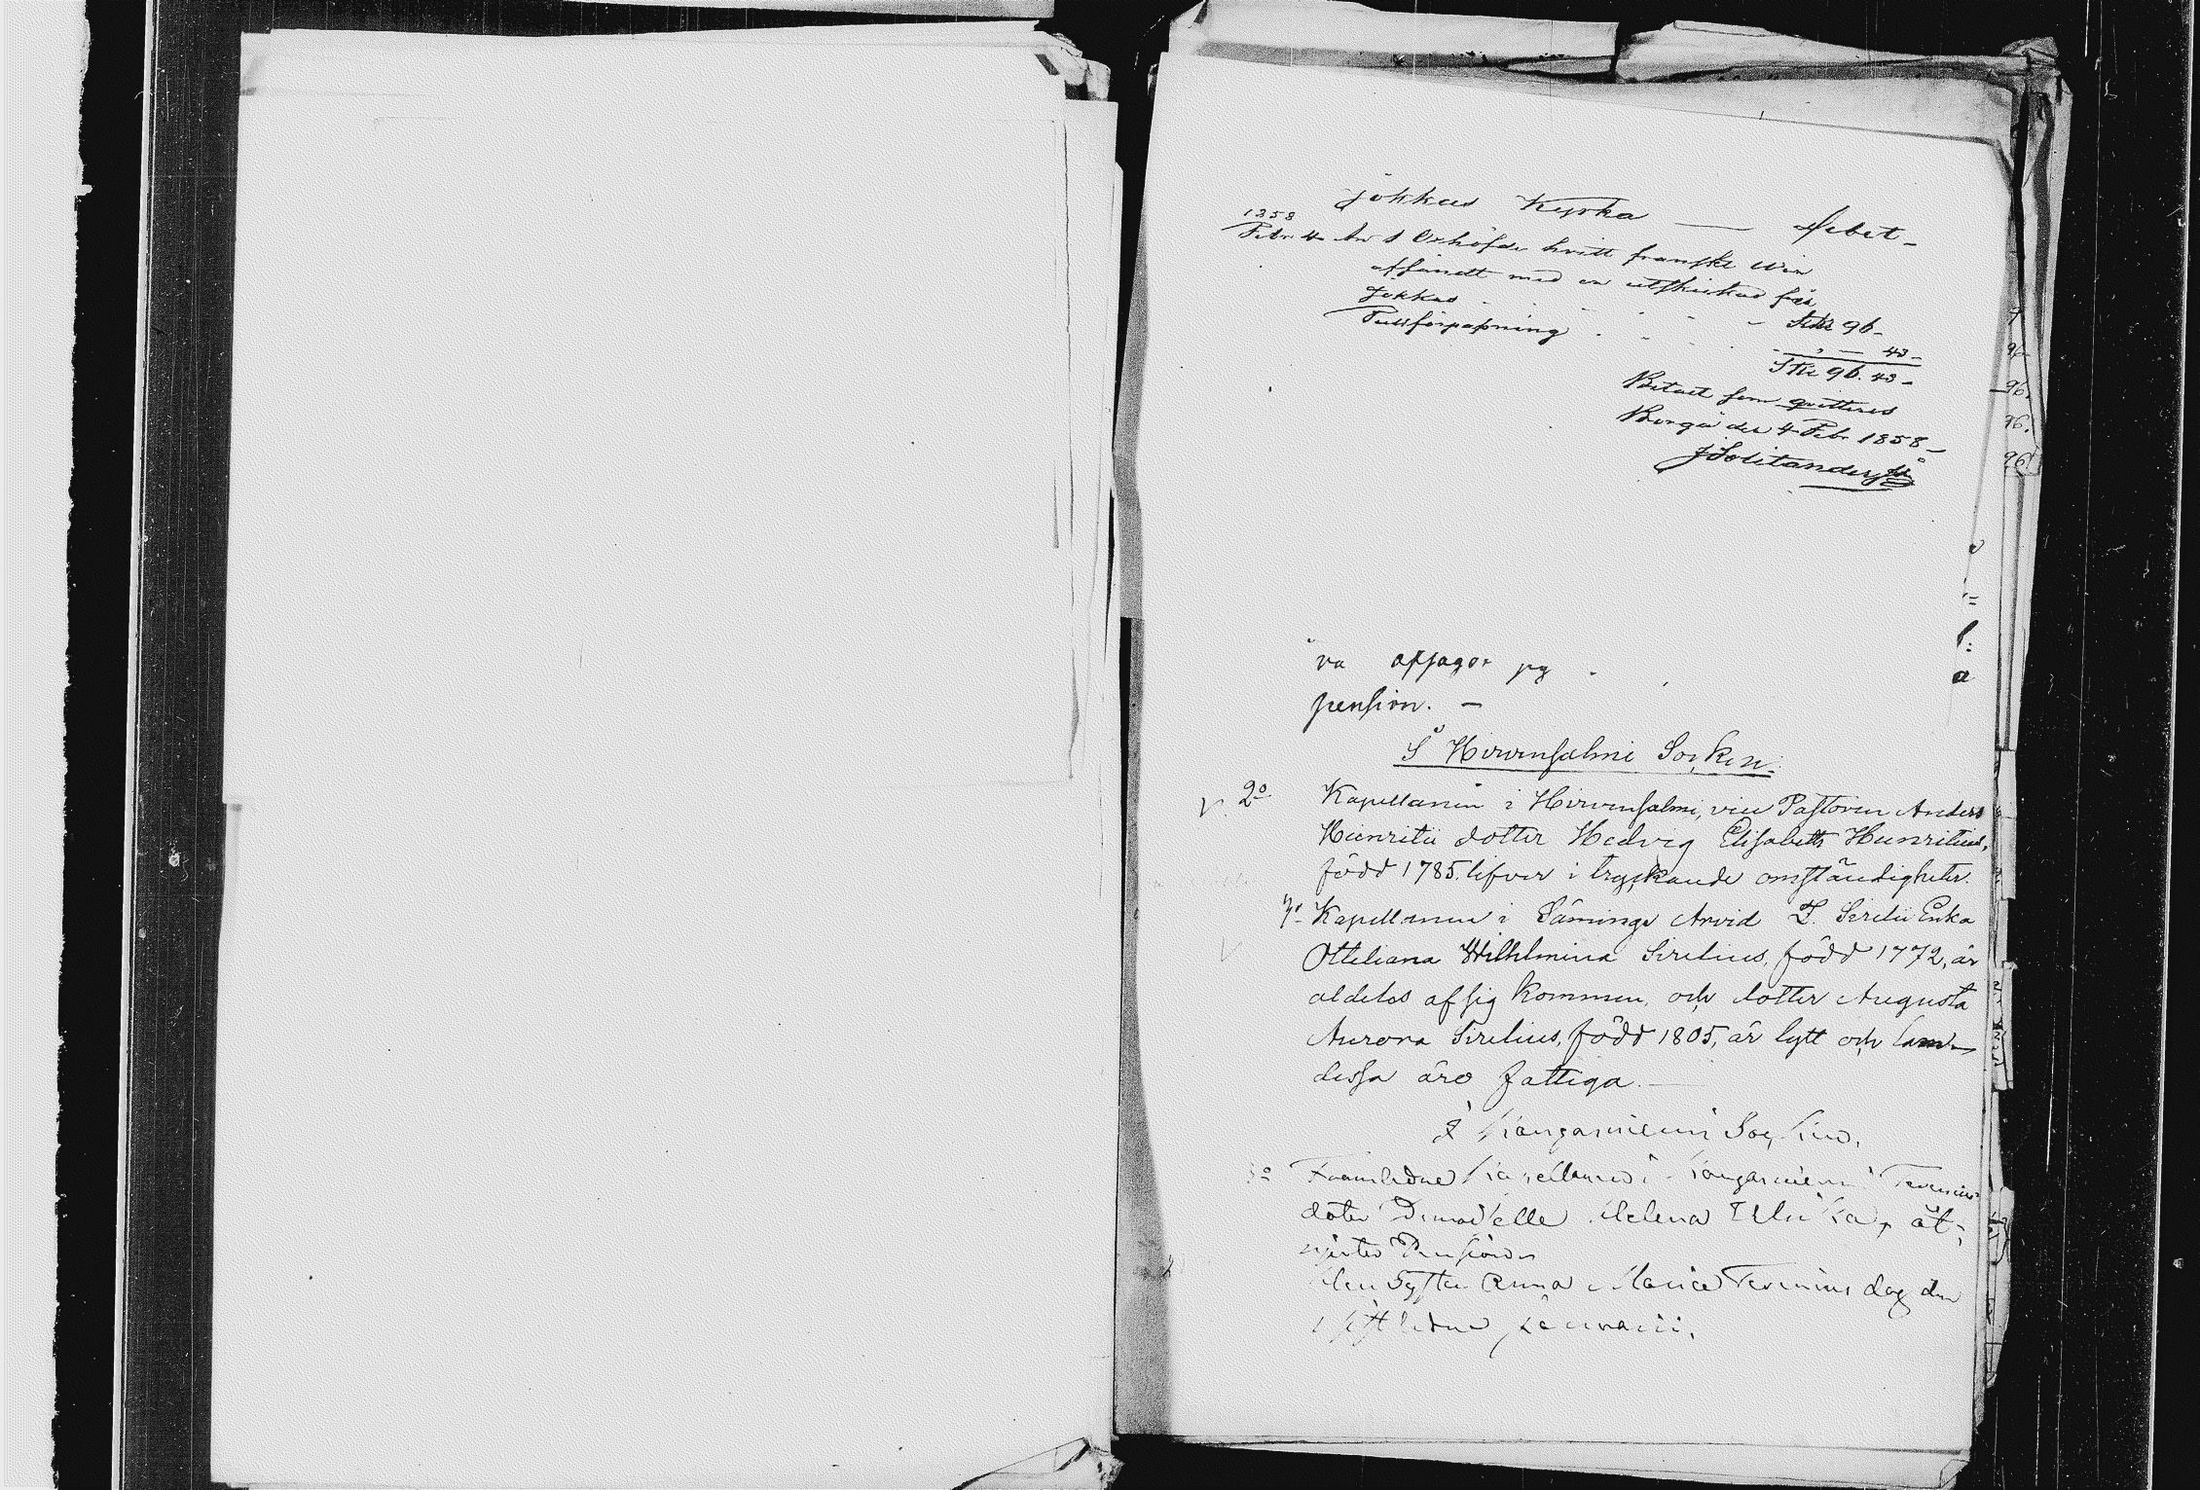 Jokkas Kyrka — Debet —
1858
Febr 4 An 1 Oxhöfde hvitt franskt Win
afsändt med en utskickad från
Jokkas — SRr 96 —
Tullförpassning — 43 —
SRr 96. 43 —
Betalt som qvitteras
Borgå den 4 Febr 1858 —
J Solitander
7
96
96.
96.
96
va afsagor
pension. —
a
I Hirvensalmi Socken.
V. 2o Kapellanen i Hirvensalmi, vice Pastoren Anders
Heinritii dotter Hedvig Elisabeth Heinritius,
född 1785, lefver i tryckande omständigheter.
Kapellanen i Säminge Arvid Z. Sirelii Enka
Otteliana Wilhelmina Sirelius, född 1772, är
aldeles af sig kommen, och dotter Augusta
Aurora Sirelius, född 1805, är lytt och lam —
dessa äro fattiga. —
I Kangasniemi Socken.
Framledne Kapellanen i Kangasniemi
doter Demoiselle Helena Ulrika, åt-
njuter Pension
Syster Anna Maria dog den
1 sistledne januarii.